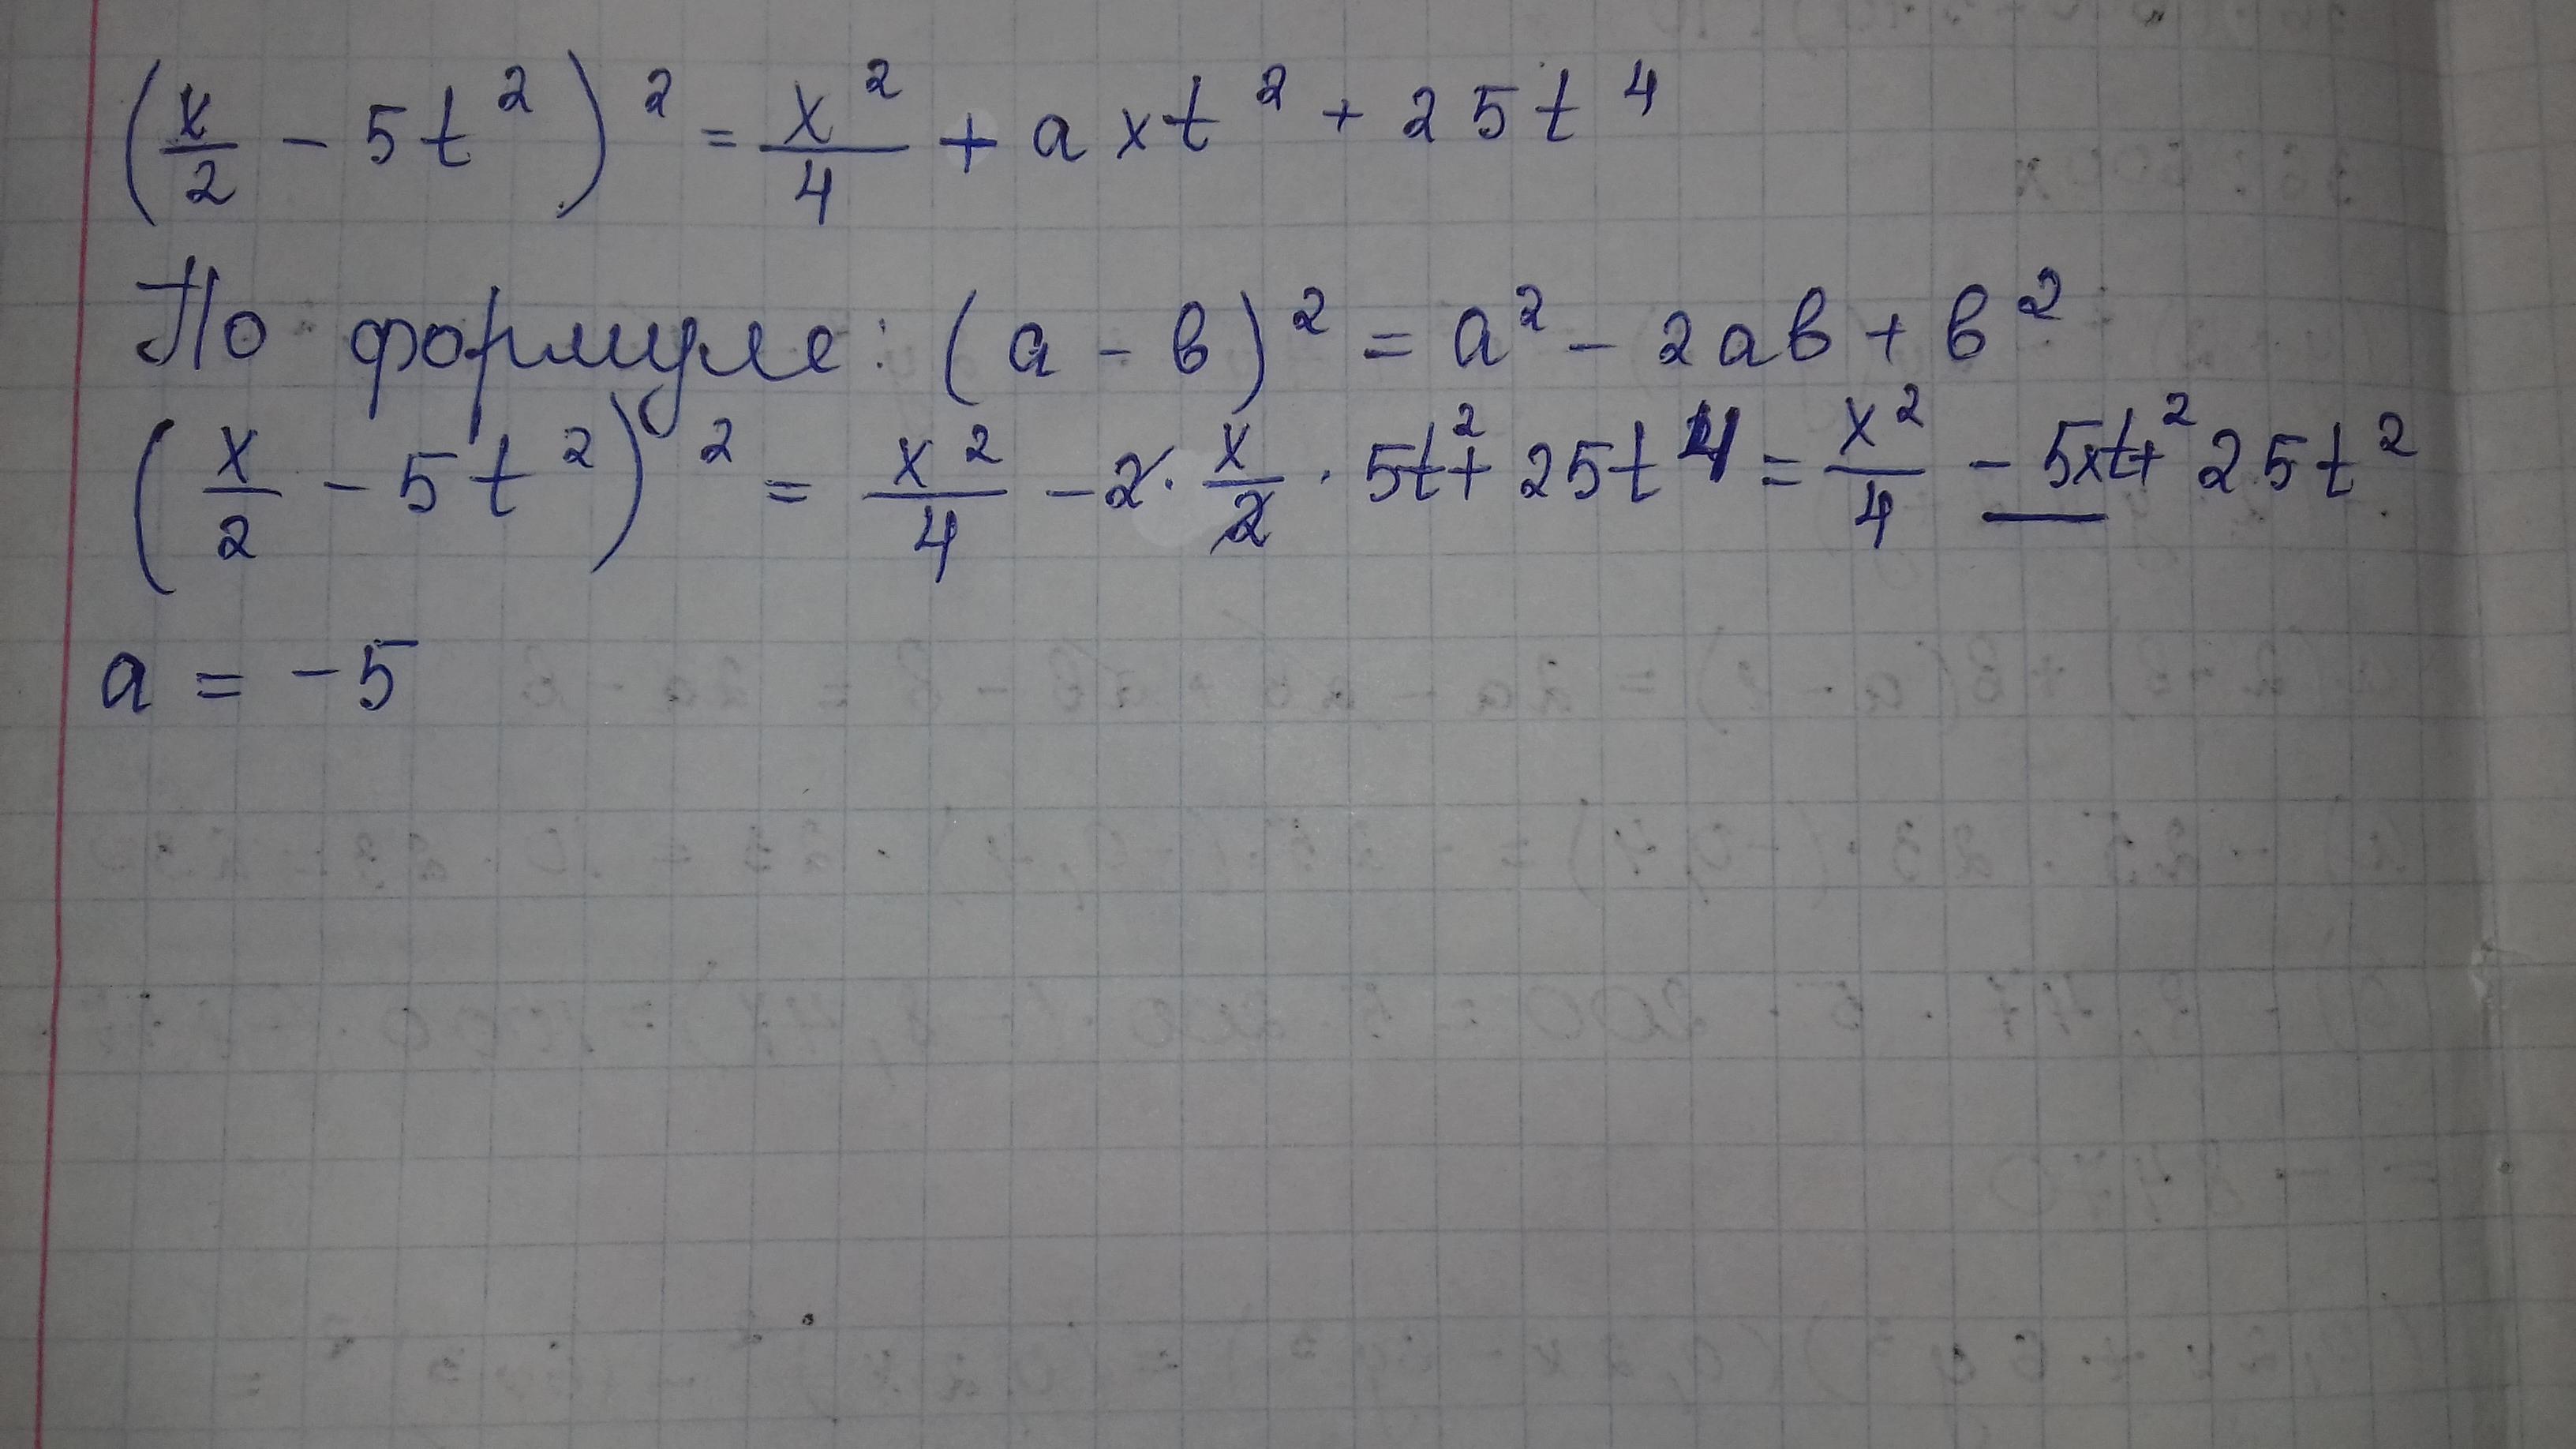 (x/2 - 5t²)² = x²/4 + axt² + 25t⁴
По формуле: (a - в)² = a² - 2aв + в²
(x/2 - 5t²)² = x²/4 - 2 · x/2 · 5t² + 25t⁴ = x²/4 - 5xt² + 25t²
a = -5